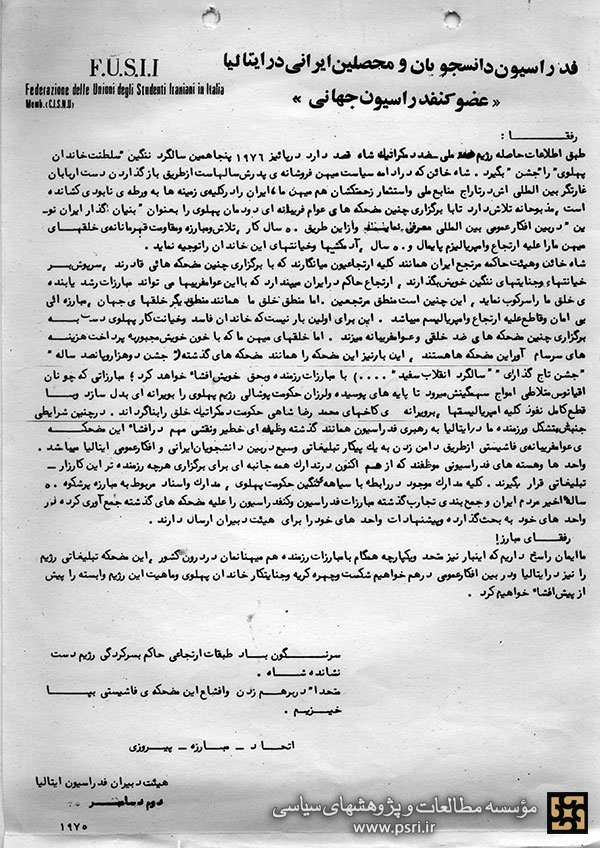 F.U.S.I.I
Federazione delle Unioni degli Studenti Iraniani in Italia
Memb.(C.I.S.N.U)
فدراسیون دانسجویان و محصلین ایرانی در ایتالیا
« عضو کنفدراسیون جهانی »
رفقا :
طبق اطلاعات حاصله رژیم ضد دمکراتیک شاه قصد دارد در پائیز ۱۹۷۶ پنجاهمین سالگرد ننگین "سلطنت خاندان
پهلوی" را "جشن" بگیرد . شاه خائن که در ادامه سیاست میهن فروشانه ی پدرش سالهاست از طریق باز گذاردن دست اربابان
غارتگر بین المللی اش در تاراج منابع ملی و استثمار زحمتکشان هم میهن ما، ایران را در کلیه ی زمینه ها به ورطه ی نابودی کشانده
است ، مذبوحانه تلاش دارد تا با برگزاری چنین مضحکه های عوام فریبانه ای دودمان پهلوی را بعنوان "بنیان گذار ایران نو-
ین" در بین افکار عمومی بین المللی معرفی نماید و از این طریق ۵۰ سال کار ، تلاش و مبارزه و مقاومت قهرمانانه ی خلقهای
میهن ما را علیه ارتجاع و امپریالیزم پایمال و ۵۰ سال آدمکشیها و خیانتهای این خاندان را توجیه نماید .
شاه خائن و هیئت حاکمه مرتجع ایران همانند کلیه ارتجاعیون میانگارند که با برگزاری چنین مضحکه هائی قادرند ، سرپوش بر
خیانتها و جنایتهای ننگین خویش بگذارند ، ارتجاع حاکم در ایران میپندارد که با این عوامفریبیها می تواند مبارزات رشد یابنده
ی خلق ما را سرکوب نماید ، این چنین است منطق مرتجعین . اما منطق خلق ما همانند منطق دیگر خلقهای جهان ، مبارزه الی
بی امان و قاطع علیه ارتجاع و امپریالیسم میباشد . این برای اولین بار نیست که خاندان فاسد و خیانت کار پهلوی دست به
برگزاری چنین مضحکه های ضد خلقی و عوامفریبانه میزند . اما خلقهای میهن ما که با خون خویش مجبور به پرداخت هزینه
های سرسام آور این مضحکه ها هستند ، این بار نیز این مضحکه را همانند مضحکه های گذشته (" جشن دو هزار و پانصد ساله "
"جشن تاج گذاری" "سالگرد انقلاب سفید" ....) با مبارزات رزمنده و بحق خویش افشاء خواهد کرد ؛ مبارزاتی که چونان
اقیانوس متلاطمی امواج سهمگینش میرود تا پایه های پوسیده و لرزان حکومت پوشالی رژیم پهلوی را بویرانه ای بدل سازد و با
قطع کامل نفوذ کلیه امپریالیستها ، بر ویرانه ی کاخهای محمد رضا شاهی حکومت دمکراتیک خلق را بنا گرداند . در چنین شرایطی
جنبش متشکل و رزمنده ما در ایتالیا به رهبری فدراسیون همانند گذشته وظیفه ای خطیر و نقشی مهم در افشاء این مضحکه
ی عوامفریبانه ی فاشیستی از طریق دامن زدن به یک پیکار تبلیغاتی وسیع در بین دانشجویان ایرانی و افکار عمومی ایتالیا میباشد .
واحد ها و هسته های فدراسیونی موظفند که از هم اکنون در تدارک همه جانبه ای برای برگزاری هرچه رزمنده تر این کارزار -
تبلیغاتی قرار بگیرند . کلیه مدارک موجود در رابطه با سیاهه ننگین حکومت پهلوی ، مدارک و اسناد مربوط به مبارزه پرشکوه ۵۰
ساله اخیر مردم ایران و جمع بندی تجارب گذشته مبارزات فدراسیون و کنفدراسیون را علیه مضحکه های گذشته جمع آوری کرده در
واحد های خود به بحث گذارده و پیشنهادات واحد های خود را برای هیئت دبیران ارسال دارند .
رفقای مبارز!
ما ایمان راسخ داریم که اینبار نیز متحد و یکپارچه همگام با مبارزات رزمنده هم میهنانمان در درون کشور ، این مضحکه تبلیغاتی رژیم
را نیز در ایتالیا و در بین افکار عمومی درهم خواهیم شکست و چهره کریه و جنایتکار خاندان پهلوی و ماهیت این رژیم وابسته را بیش
از پیش افشاء خواهیم کرد .
سرنگون باد طبقات ارتجاعی حاکم بسرکردگی رژیم دست
نشانده شاه .
متحداً در برهم زدن و افشاع این مضحکه ی فاشیستی بپا
خیزیم .
اتحاد - مبارزه - پیروزی
هیئت دبیران فدراسیون ایتالیا
دوم دسامبر
۱۹۷۵
مؤسسه مطالعات و پژوهشهای سیاسی
www.psri.ir